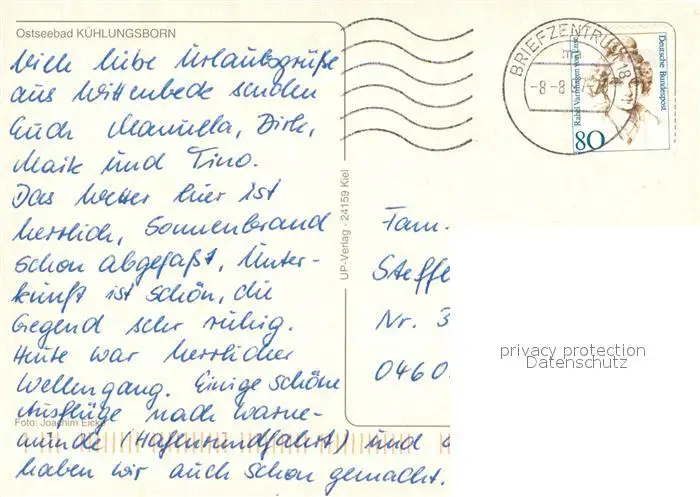 Ostseebad KÜHLUNGSBORN
Viele liebe Urlaubsgrüße
aus Wittenbeck senden
Euch Manuela, Dirk,
Maik und Tino.
Das Wetter hier ist
herrlich, Sonnenbrand
schon abgefaßt, Unter-
kunft ist schön, die
Gegend sehr ruhig.
Heute war herrlicher
Wellengang. Einige schöne
Ausflüge nach Warne-
münde (Hafenrundfahrt) und
haben wir auch schon gemacht.
Foto: Joachim Eicke
UP-Verlag · 24159 Kiel
BRIEFZENTRUM 18
-8-8.
Deutsche Bundespost
Rahel Varnhagen von Ense
80
Fam.
Steffe
Nr. 3
0460
privacy protection
Datenschutz